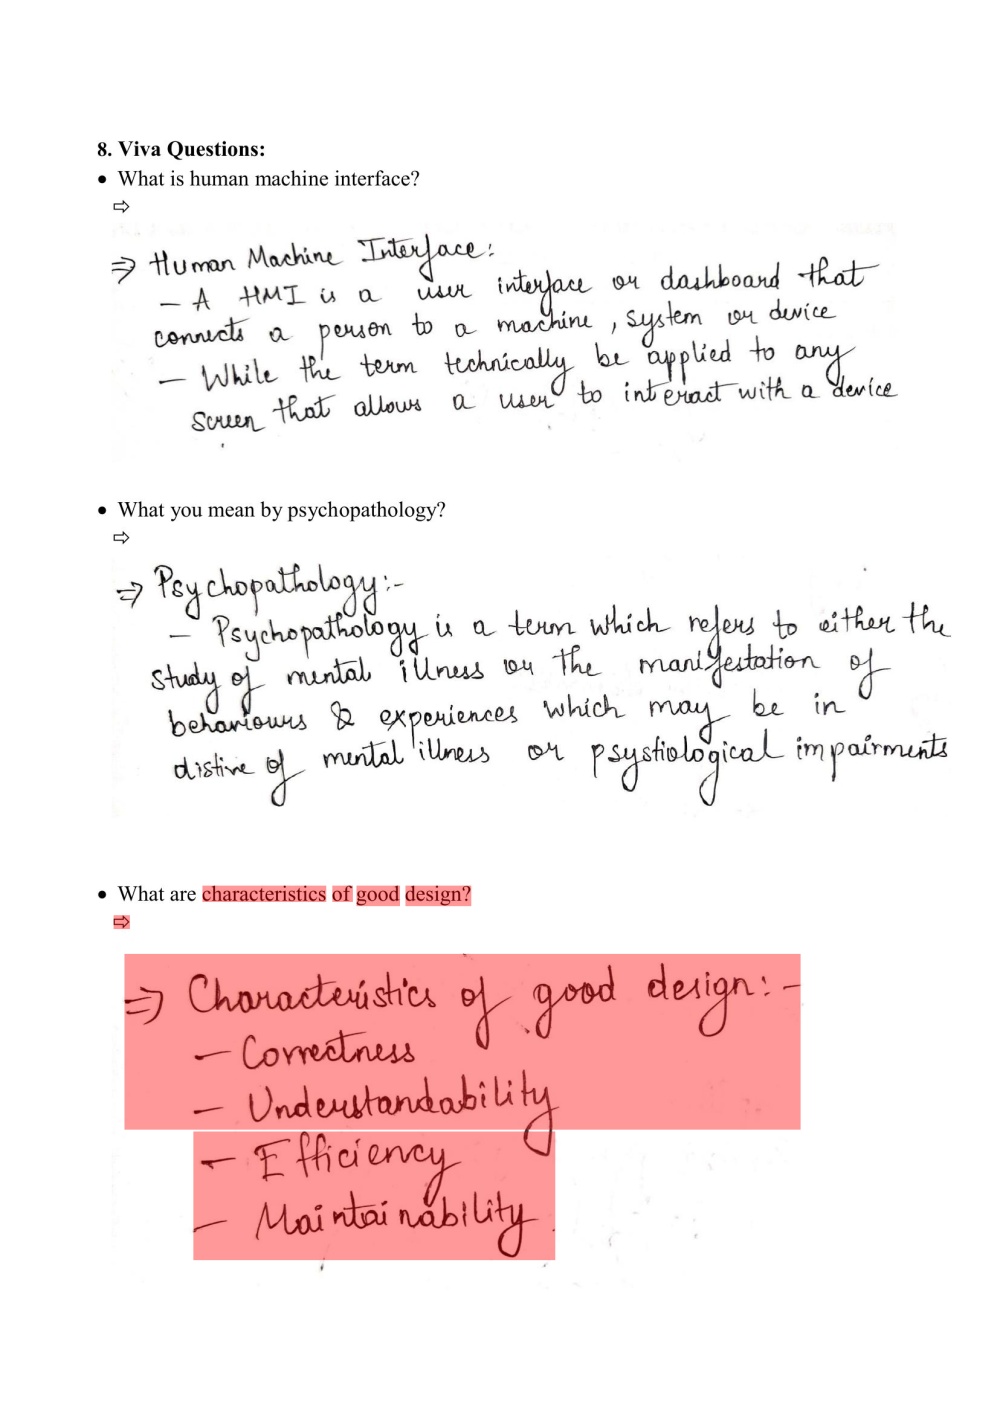 8. Viva Questions:
• What is human machine interface?
⇨
⇒ Human Machine Interface:
– A HMI is a user interface or dashboard that
connects a person to a machine, system or device
– While the term technically be applied to any
Screen that allows a user to interact with a device
• What you mean by psychopathology?
⇨
⇒ Psychopathology:-
– Psychopathology is a term which refers to either the
study of mental illness or the manifestation of
behaviours & experiences which may be in
distive of mental illness or psystiological impairments
• What are characteristics of good design?
⇨
⇒ Characteristics of good design:-
– Correctness
– Understandability
– Efficiency
– Maintainability